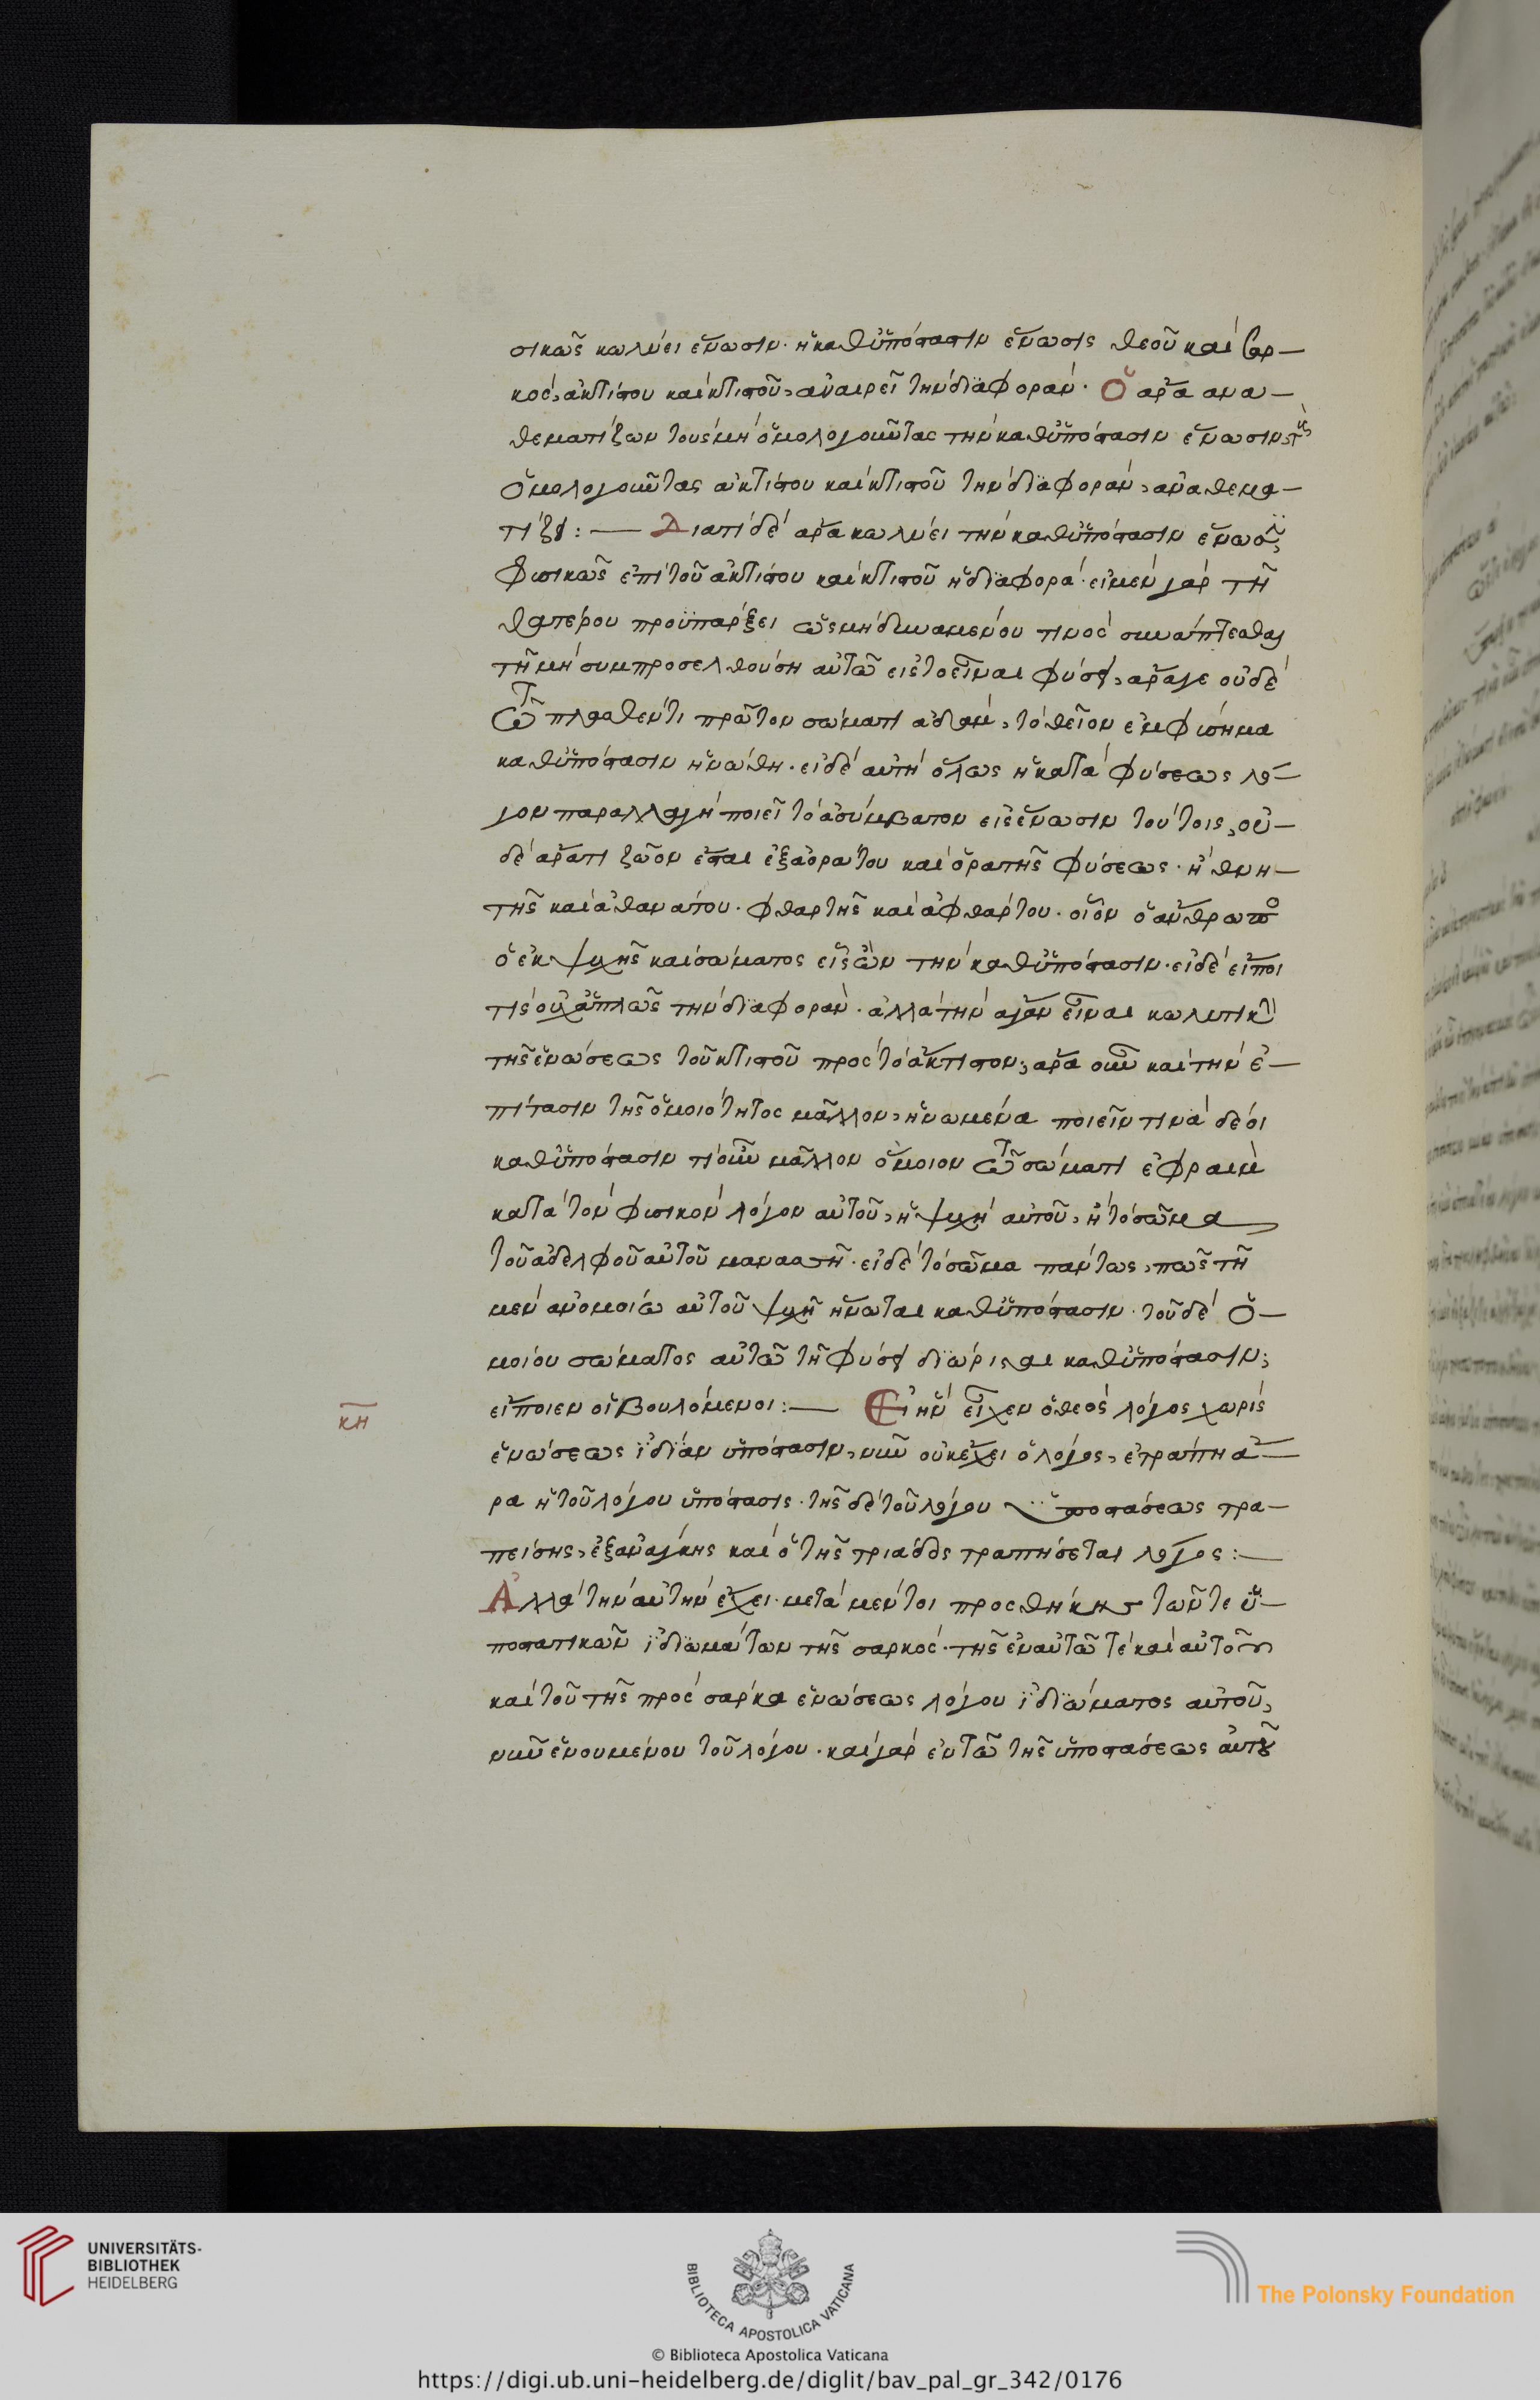 σικῶς κωλύει ἕνωσιν. ἡ καθ ὑπόστασιν ἕνωσις θεοῦ καὶ σαρ-
κὸς, ἀκτίστου καὶ κτιστοῦ, ἀναιρεῖ τὴν διαφοράν. Ὁ ἄρα ανα-
θεματίζων τοὺς μὴ ὁμολογοῦντας τὴν καθ ὑπόστασιν ἕνωσιν, τοὺς
ὁμολογοῦντας ἀκτίστου καὶ κτιστοῦ τὴν διαφοράν, αναθεμα-
τίζει: — Διατί δὲ ἄρα κωλύει τὴν καθ ὑπόστασιν ἕνωσιν,
φυσικῶς ἐπὶ τοῦ ἀκτίστου καὶ κτιστοῦ ἡ διαφορά. εἰ μὲν γὰρ τῆ
θατέρου προϋπάρξει ὡς μὴ δυναμένου τινὸς συνάπτεσθαι
τῆ μὴ συμπροσελθούση αὐτῶ εἰς τὸ εἶναι φύσει, ἄρά γε οὐδὲ
τῶ πλασθέντι πρῶτον σώματι ἀδαμ, τὸ θεῖον ἐμφύσημα
καθ ὑπόστασιν ἡνώθη. εἰ δὲ αὐτὴ ὅλως ἡ κατὰ φύσεως λό-
γον παραλλαγὴ ποιεῖ τὸ ἀσύμβατον εἰς ἕνωσιν τούτοις, οὐ-
δὲ ἄρά τι ζῶον ἔσται ἐξ ἀοράτου καὶ ὁρατῆς φύσεως. ἢ θνη-
τῆς καὶ ἀθανάτου. φθαρτῆς καὶ ἀφθάρτου. οἷον ὁ ἄνθρωπος
ὁ ἐκ ψυχῆς καὶ σώματος εἷς ὢν τὴν καθ ὑπόστασιν. εἰ δὲ εἴποι
τὶς οὐχ ἁπλῶς τὴν διαφοράν. ἀλλὰ τὴν ἄγαν εἶναι κωλυτικὴν
τῆς ἑνώσεως τοῦ κτιστοῦ πρὸς τὸ ἄκτιστον, ἄρα οὖν καὶ τὴν ἐ-
πίτασιν τῆς ὁμοιότητος μᾶλλον, ἡνωμένα ποιεῖν τινὰ δέοι
καθ ὑπόστασιν τί οὖν μᾶλλον ὅμοιον τῶ σώματι ἐφραιμ
κατὰ τὸν φυσικὸν λόγον αὐτοῦ, ἡ ψυχὴ αὐτοῦ, ἢ τὸ σῶμα
τοῦ ἀδελφοῦ αὐτοῦ μανασσῆ. εἰ δὲ τὸ σῶμα πάντως, πῶς τῆ
μὲν ἀνομοίω αὐτοῦ ψυχῆ ἥνωται καθ ὑπόστασιν. τοῦ δὲ ὁ-
μοίου σώματος αὐτῶ τῆ φύσει διώρισται καθ ὑπόστασιν;
εἴποιεν οἱ βουλόμενοι: — Εἰ ἣν εἶχεν ὁ θεὸς λόγος χωρὶς
κη
ἑνώσεως ἰδίαν ὑπόστασιν, νῦν οὐκ ἔχει ὁ λόγος, ἐτράπη ἄ-
ρα ἡ τοῦ λόγου ὑπόστασις. τῆς δὲ τοῦ λόγου ὑποστάσεως τρα-
πείσης, ἐξανάγκης καὶ ὁ τῆς τριάδος τραπήσεται λόγος: —
Ἀλλὰ τὴν αὐτὴν ἔχει. μετὰ μέντοι προσθήκης τῶν τε ὑ-
ποστατικῶν ἰδιωμάτων τῆς σαρκὸς. τῆς ἐν αὐτῶ τὲ καὶ αὐτοῦ
καὶ τοῦ τῆς πρὸς σάρκα ἑνώσεως λόγου ἰδιώματος αὐτοῦ,
νῦν ἑνουμένου τοῦ λόγου. καὶ γὰρ ἐν τῶ τῆς ὑποστάσεως αὐτοῦ
UNIVERSITÄTS-
BIBLIOTHEK
HEIDELBERG
BIBLIOTECA APOSTOLICA VATICANA
The Polonsky Foundation
© Biblioteca Apostolica Vaticana
https://digi.ub.uni-heidelberg.de/diglit/bav_pal_gr_342/0176